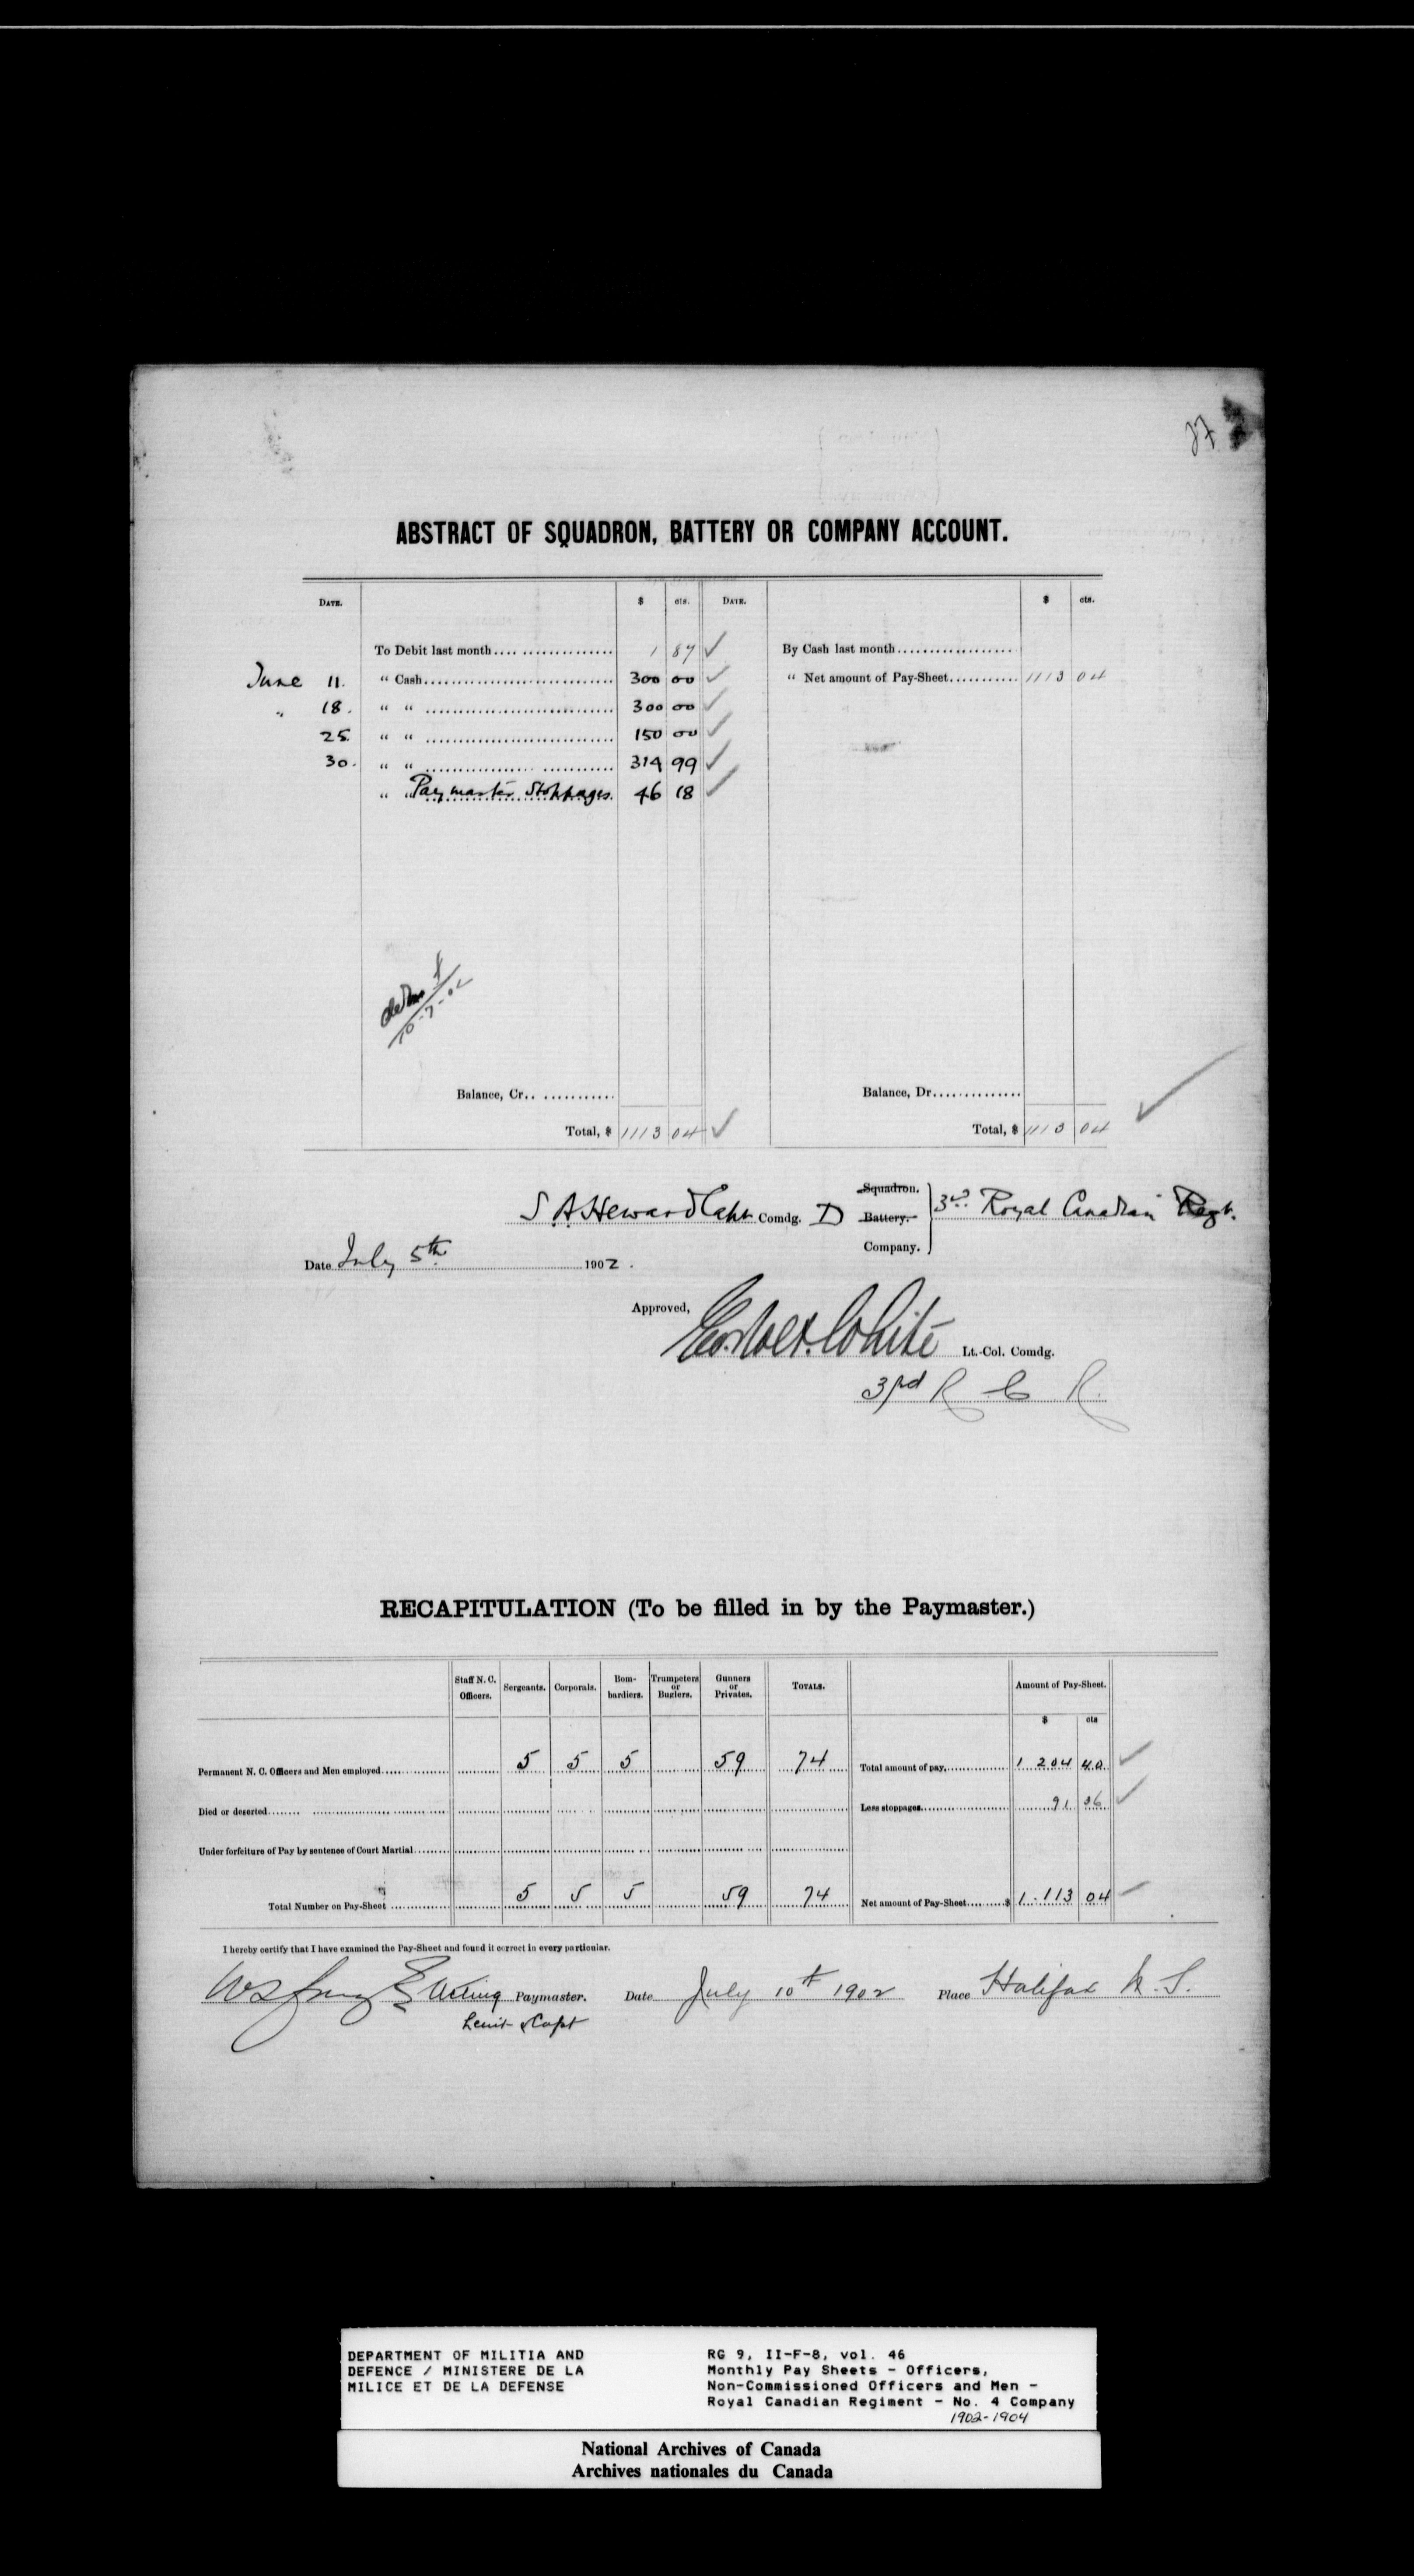 ABSTRACT OF SQUADRON, BATTERY OR COMPANY ACCOUNT.
DATE. $ cts. DATE. $ cts.
To Debit last month 1 87 By Cash last month
June 11. " Cash 300 00 " Net amount of Pay-Sheet 1113 04
" 18. " " 300 00
25. " " 150 00
30. " " 314 99
" " Paymaster Stoppages. 46 18
10-7-02
Balance, Cr. Balance, Dr.
Total, $ 1113 04 Total, $ 1113 04
S A Heward Capt Comdg. D Squadron. Battery. Company. 3rd Royal Canadian Regt.
Date July 5th 1902.
Approved,
White Lt.-Col. Comdg.
3rd R C R.
RECAPITULATION (To be filled in by the Paymaster.)
Staff N. C. Officers. Sergeants. Corporals. Bombardiers. Trumpeters or Buglers. Gunners or Privates. TOTALS. Amount of Pay-Sheet.
$ cts
Permanent N. C. Officers and Men employed 5 5 5 59 74 Total amount of pay 1 204 40
Died or deserted Less stoppages 91 36
Under forfeiture of Pay by sentence of Court Martial
Total Number on Pay-Sheet 5 5 5 59 74 Net amount of Pay-Sheet $ 1 113 04
I hereby certify that I have examined the Pay-Sheet and found it correct in every particular.
Acting Paymaster. Date July 10th 1902 Place Halifax N.S.
Leuit & Capt
DEPARTMENT OF MILITIA AND
DEFENCE / MINISTERE DE LA
MILICE ET DE LA DEFENSE
RG 9, II-F-8, vol. 46
Monthly Pay Sheets - Officers,
Non-Commissioned Officers and Men -
Royal Canadian Regiment - No. 4 Company
1902-1904
National Archives of Canada
Archives nationales du Canada